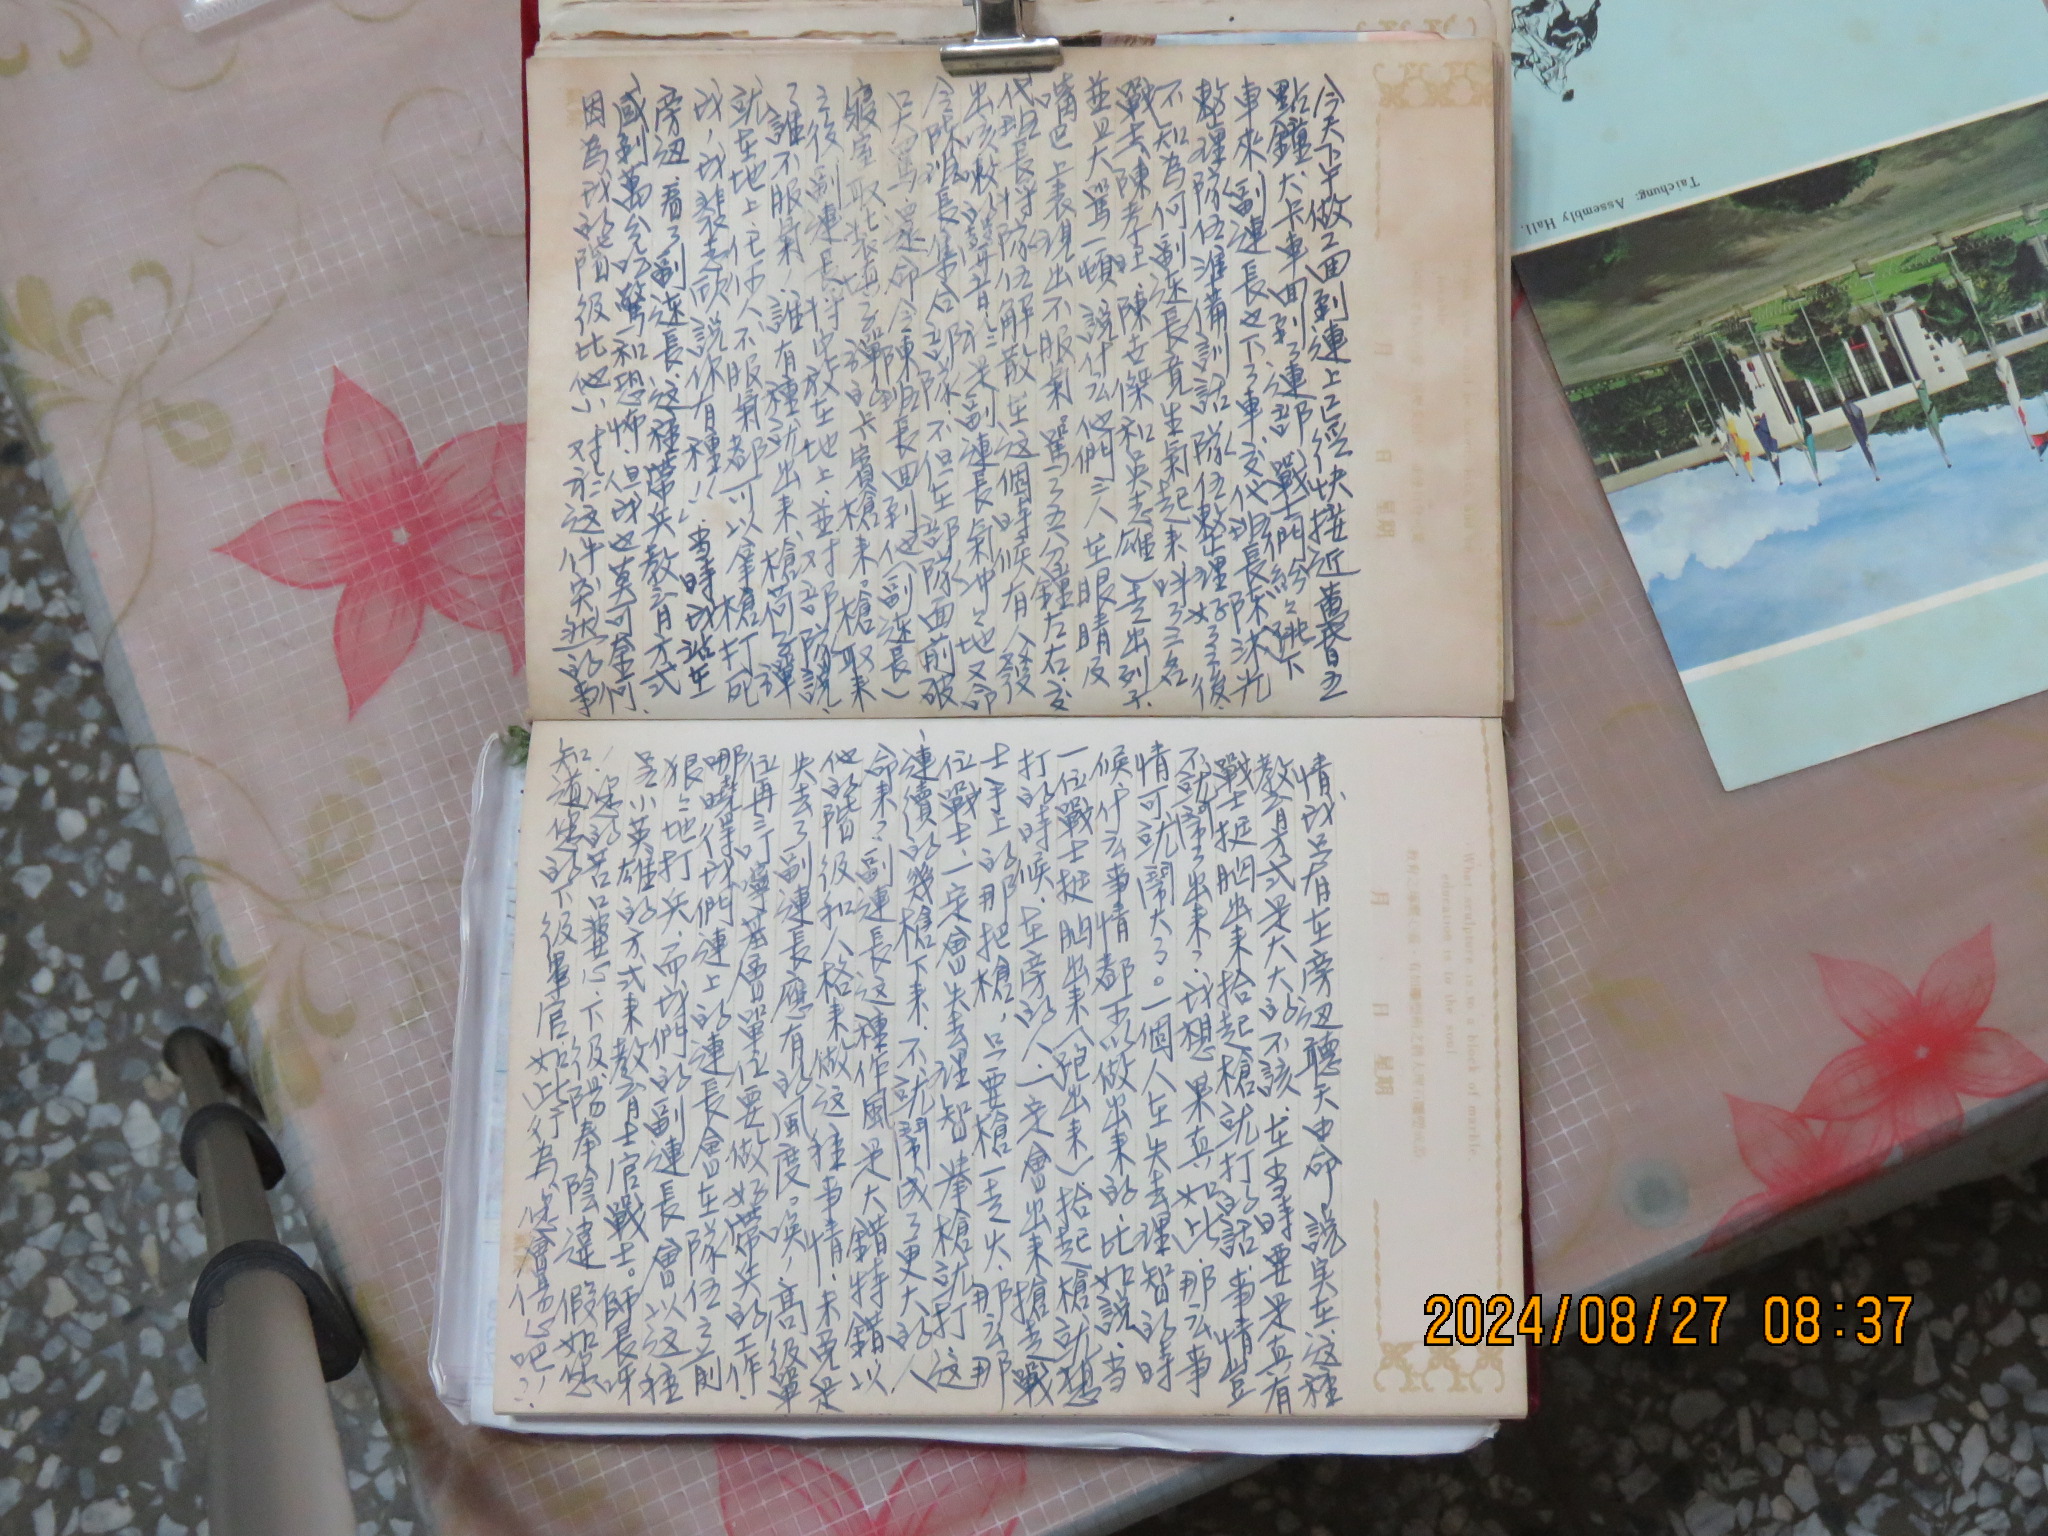 今天下午做工回到連上已經快接近黃昏五
點鐘、大卡車回到了連部、戰士們紛紛跳下
車來、副連長也下了車、交代班長陳沐光
整理隊伍準備訓話、隊伍整理好了之後、
不知為何副連長竟生氣起來叫了三名
戰士陳孝旺、陳世傑和吳志雄（走出列子、
並且大罵一頓、說什么他們三人在眼睛及
嘴巴上表現出不服氣、罵了五分鐘左右、交
代班長將隊伍解散、在這個時候有人發
出咳嗽的聲音、於是副連長氣沖沖地又命
令陳班長集合部隊、不但在部隊面前破
口大罵、還命令陳班長回到他（副連長）
寢室取裝填子彈的卡賓槍來、槍取來
之後、副連長將它放在地上、並對部隊說、
了誰不服氣、誰有種就出來、槍荷子彈
就在地上、任何人不服氣都可以拿槍打死
我、我若走欣說你有種!! 」當時我站在
旁边、看了副連長這種帶兵教育方式
感到萬分吃驚和恐怖、但我也莫可奈何、
因為我的階級比他小、對於這件突然的事
情我只有在旁边聽天由命、說实在、這種
教育方式是大大的不該、在当時要是真有
戰士挺胸出來拾起槍就打的話、事情豈
不就鬧出來？我想果真如此、那么事
情可就鬧大了。一個人在失去理智的時
候什么事情都可以做出來的、比如說、当
一位戰士挺胸出來（跑出來）拾起槍就想
打的時候、在旁的人一定會出來搶走戰
士手上的那把槍、只要槍一走火、那么那
位戰士一定會失去理智、舉槍就打、這
連續的幾槍下來、不就鬧成了更大的人
命來？副連長這種作風是大錯特錯、以
他的階級和人格來做這種事情、未免是
失去了副連長應有的風度？唉、高級單
位再三叮嚀基層單位要做好帶兵的工作、
哪曉得我們連上的連長會在隊伍之前
狠狠地打兵、而我們的副連長會以這種
呈小英雄的方式來教育士官戰士。師長呀
！您的苦口婆心、下級陽奉陰違、假如您
知道您的下級軍官如此行為、您會傷心吧！？
What sculpture is to a block of marble,
education is to the soul
月 日 星期
月 日 星期
Taichung: Assembly Hall.
2024/08/27 08:37